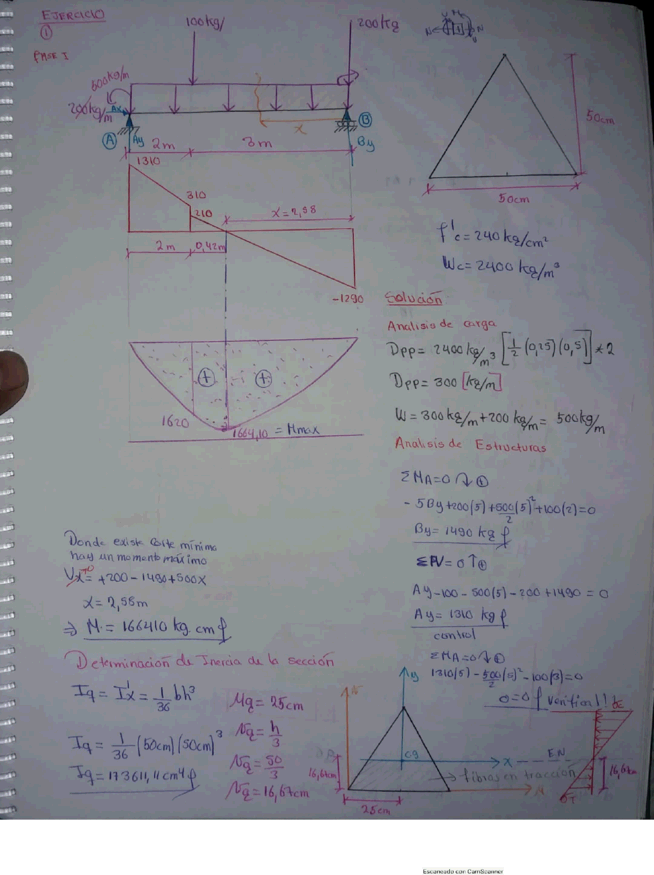 EJERCICIO
①
FASE I
100kg/
200kg
500kg/m
200kg/m
Ax
A
Ay
B
By
x
2m
3m
1310
310
210
x=2,58
2m
0,42m
-1290
1620
1664,10 = Mmax
N
50cm
50cm
f'c = 240 kg/cm²
Wc = 2400 kg/m³
Solución
Analisis de carga
Dpp = 2400 kg/m³ [1/2 (0,25)(0,5)] * 2
Dpp = 300 [kg/m]
W = 300 kg/m + 200 kg/m = 500 kg/m
Analisis de Estructuras
ΣMA=0 ↷⊕
-5By+200(5)+500(5)²/2+100(2)=0
By= 1490 kg f
ΣFV=0 ↑⊕
Ay-100-500(5)-200+1490 = 0
Ay= 1310 kg f
control
ΣMA=0 ↷⊕
1310(5) - 500/2 (5)² - 100(3)=0
0=0 f verifica!!
Donde existe corte mínimo
hay un momento máximo
Vx= +200 - 1490+500x
x = 2,58m
⇒ M = 166410 kg.cm f
Determinación de Inercia de la sección
Ig = Ix' = 1/36 bh³
Ig = 1/36 (50cm)(50cm)³
Ig = 173611,11 cm⁴ f
= 25cm
= h/3
= 50/3
= 16,67cm
y
cg
x
EN
fibras en tracción
16,67cm
25cm
fc
16,67cm
σT
Escaneado con CamScanner